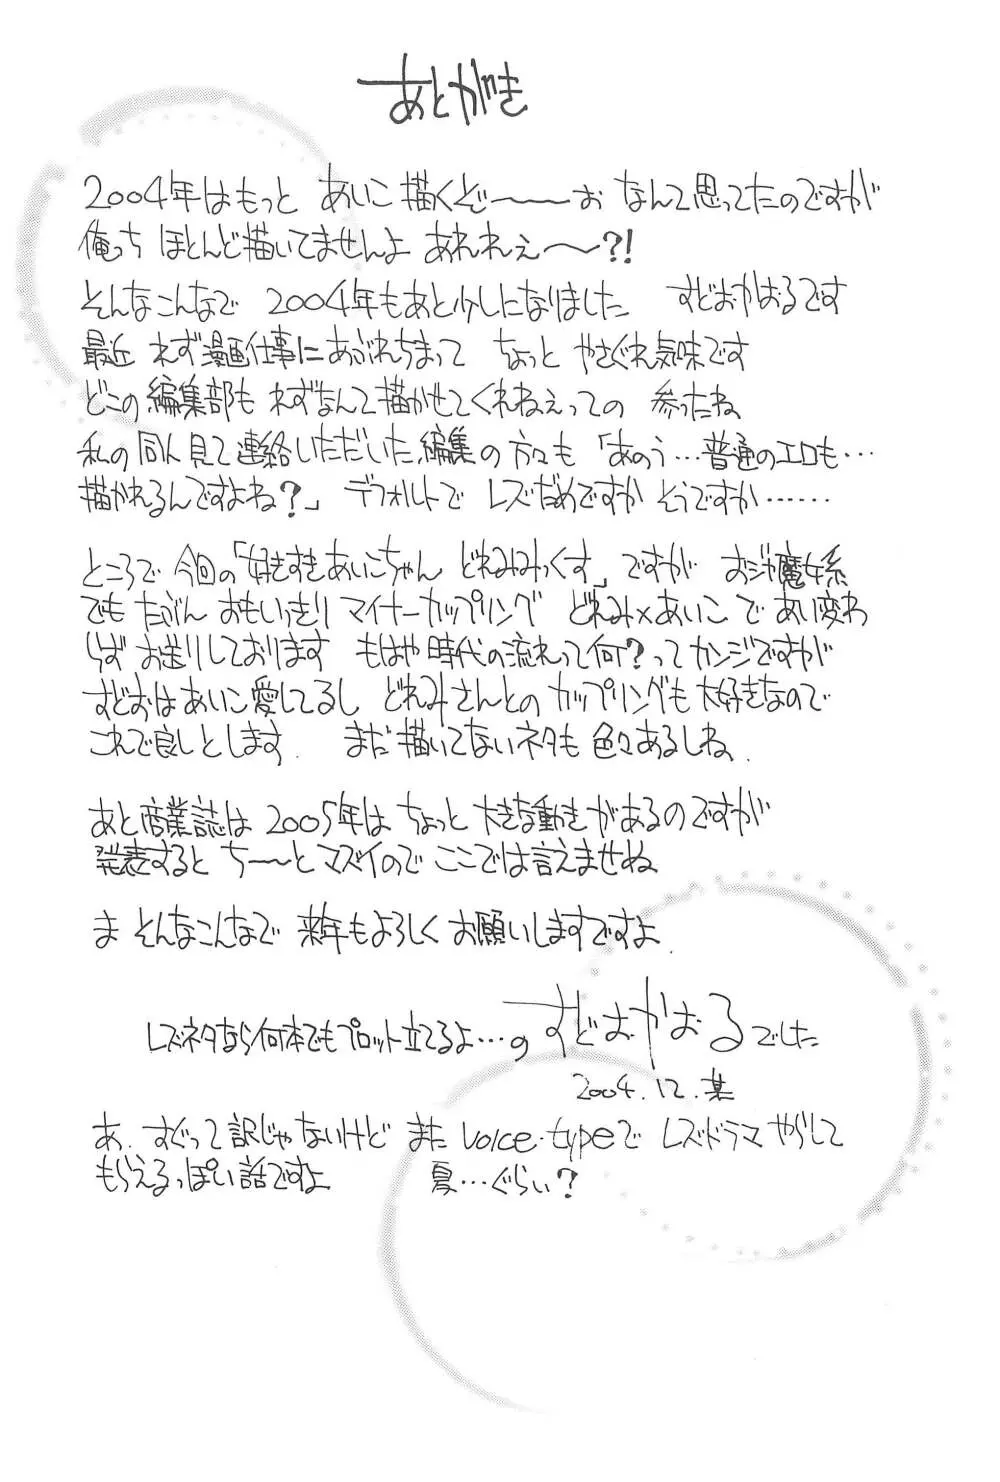 あとがき
2004年はもっと あいこ描くぞ〜〜〜お なんて思ってたのですが
俺っち ほとんど描いてませんよ あれれぇ〜〜?!
そんなこんなで 2004年もあと少しになりました すどおかおるです
最近 れず漫画仕事にあぶれちまって ちょっと やさぐれ気味です
どこの編集部も れずなんて描かせてくれねぇっての 参ったね
私の同人見て連絡いただいた編集の方々も 「あのう…普通のエロも…
描かれるんですよね?」 デフォルトで レズだめですか そうですか……
ところで 今回の「好きすきあいこちゃん どれみみっくす」ですが おジャ魔女系
でも たぶん おもいっきり マイナーカップリング どれみ×あいこ で あい変わ
らず お送りしております もはや時代の流れって何?ってカンジですが
すどおはあいこ愛してるし どれみさんとの カップリングも大好きなので
これで良しとします. まだ描いてないネタも 色々あるしね.
あと商業誌は 2005年は ちょっと大きな動きがあるのですが
発表すると ち〜〜とマズイので ここでは言えませぬ
ま そんなこんなで 来年もよろしく お願いしますですよ.
レズネタなら何本でもプロット立てるよ…の すどおかおる でした
2004.12.某
あ、すぐって訳じゃないけど また voice・typeで レズドラマやらして
もらえるっぽい話ですよ 夏…ぐらい?